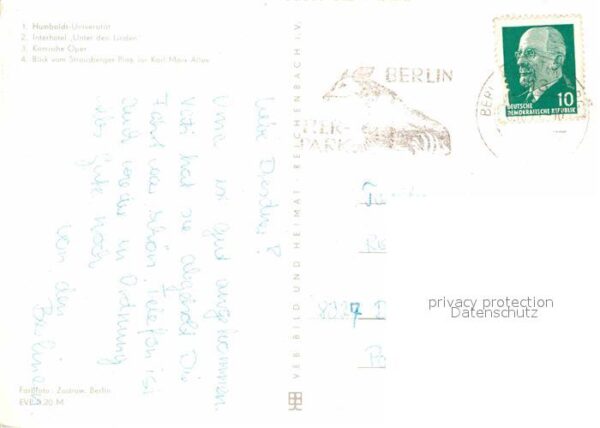 1. Humboldt-Universität
2. Interhotel „Unter den Linden"
3. Komische Oper
4. Blick vom Strausberger Platz zur Karl-Marx-Allee
Liebe Dresdner!
Uma ist gut angekommen.
Vati hat sie abgeholt. Die
Fahrt war schön, Telefon ist
auch wieder in Ordnung
alles Gute noch
von den
Berlinern
Farbfoto: Zastrow, Berlin
EVP 0,20 M
VEB BILD UND HEIMAT REICHENBACH I.V.
BERLIN
TIER-
PARK
BERL
10
DEUTSCHE
DEMOKRATISCHE REPUBLIK
8027 D
privacy protection
Datenschutz